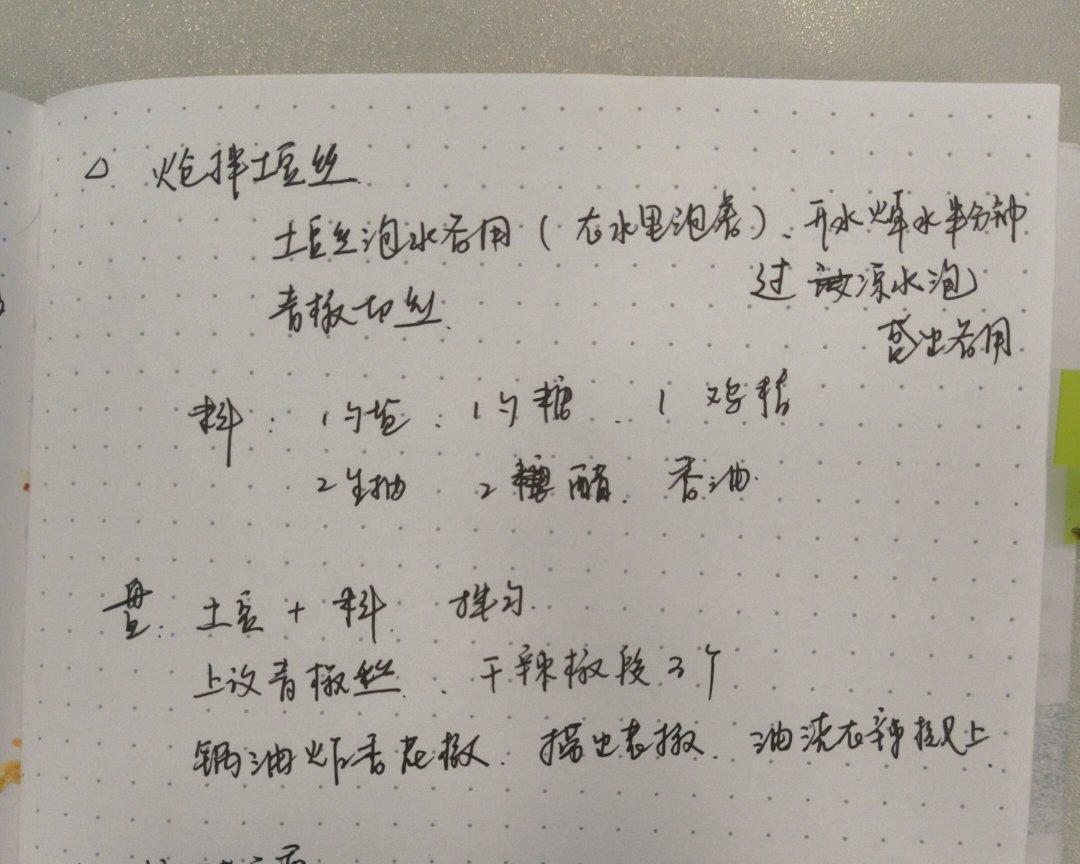 △ 炝拌土豆丝
土豆丝泡水备用（在水里泡着）、开水焯水半分钟
过凉水泡
青椒切丝
捞出备用
料：1勺盐、1勺糖、1鸡精
2生抽 2醋、香油
土豆+料 拌匀
上放青椒丝、干辣椒段3个
锅油炸香花椒、捞出花椒、油浇在辣椒上